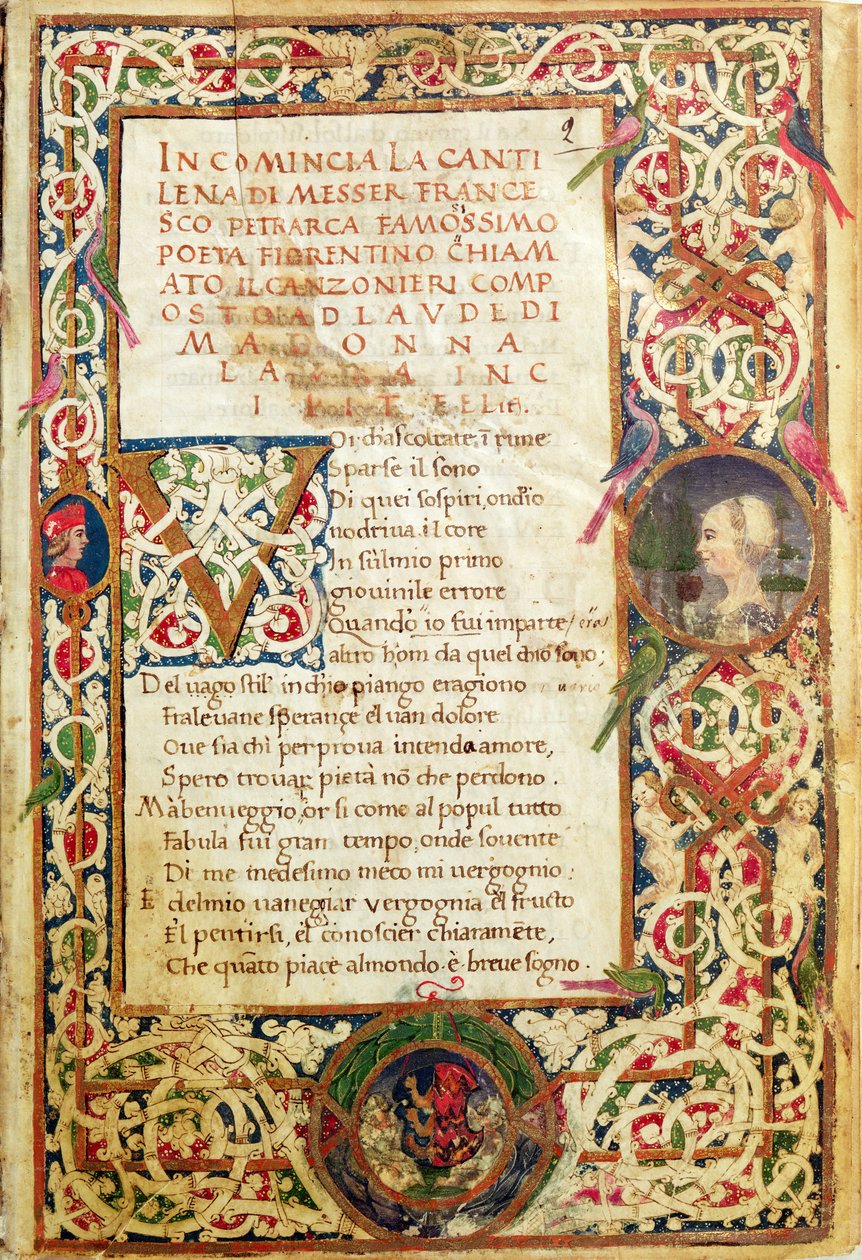 2
INCOMINCIA LA CANTI
LENA DI MESSER FRANCE
SCO PETRARCA FAMOSSIMO
si
POETA FIORENTINO CHIAM
ATO IL CANZONIERI COMP
OSTO AD LAVDE DI
MADONNA
LAVRA INC
IPIT FELIT.
VOi ch'ascoltate, ī rime
Sparse il sono
Di quei sospiri, ond'io
nodriva il core
In sùl mio primo
giovinile errore
Quand'o io fui imparte
altro hom da quel ch'io sono;
Del uago stil' in chio piango e ragiono
Fra le uane sperançe e'l uan dolore
Oue sia chì per prova intenda amore,
Spero trouar pietà nō che perdono.
Mà ben ueggio, or si come al popul tutto
Fabula fui gran tempo, onde souente
Di me medesimo meco mi uergogno;
E del mio uaneggiar vergognia è'l frusto
E'l pentirsi, e'l conoscier chiaramēte,
Che quāto piace al mondo è breue sogno.